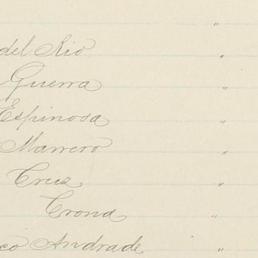 del Rio "
Guerra "
Espinosa "
Marrero "
Cruz "
Corona "
co Andrade "